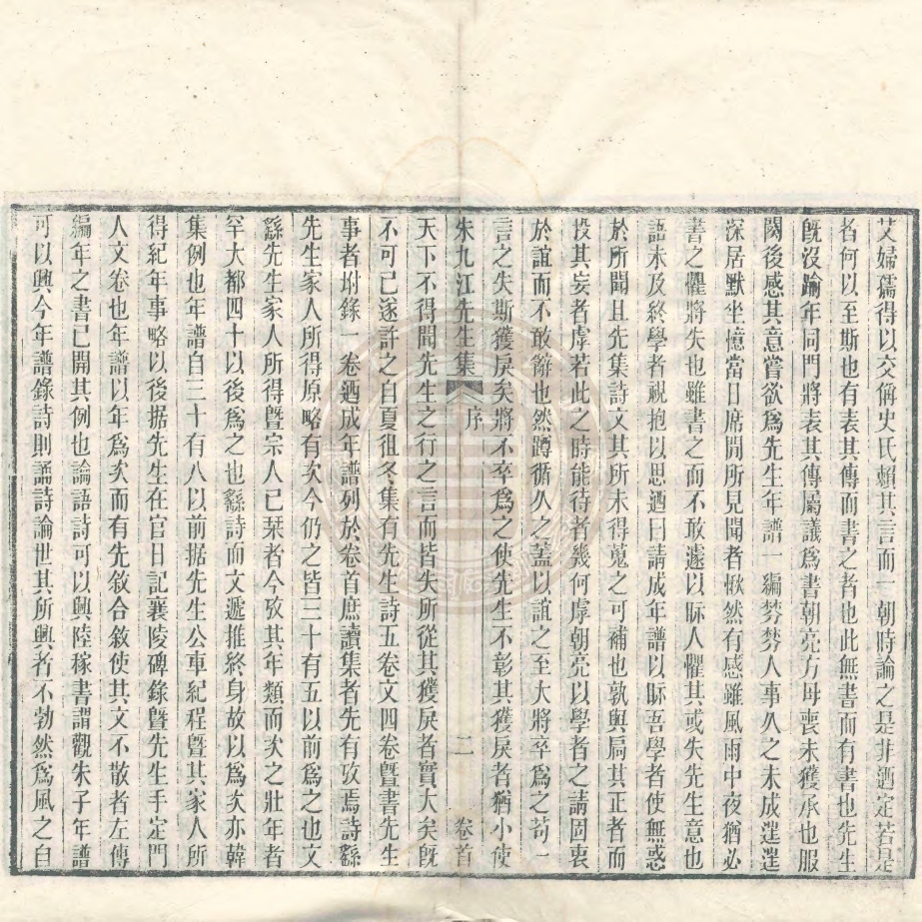 艾婦孺得以交偁史氏賴其言而一朝時論之是非迺定若是
者何以至斯也有表其傳而書之者也此無書而有書也先生
旣沒踰年同門將表其傳屬議爲書朝亮方母喪未獲承也服
闋後感其意嘗欲爲先生年譜一編棼棼人事久之未成遑遑
深居默坐憶當日席閒所見聞者愀然有感雖風雨中夜猶必
書之懼將失也雖書之而不敢遽以眎人懼其或失先生意也
語未及終學者視抱以思迺曰請成年譜以眎吾學者使無惑
於所聞且先集詩文其所未得蒐之可補也孰與扃其正者而
投其妄者虖若此之時能待者幾何虖朝亮以學者之請固衷
於誼而不敢辭也然蹲循久之蓋以誼之至大將卒爲之苟一
言之失斯獲戾矣將不卒爲之使先生不彰其獲戾者猶小使
朱九江先生集 序 二 卷首
天下不得聞先生之行之言而皆失所從其獲戾者實大矣旣
不可已遂許之自夏徂冬集有先生詩五卷文四卷曁書先生
事者坿錄一卷迺成年譜列於卷首庶讀集者先有攷焉詩繇
先生家人所得原略有次今仍之皆三十有五以前爲之也文
繇先生家人所得曁宗人已栞者今攷其年類而次之壯年者
罕大都四十以後爲之也繇詩而文遞推終身故以爲次亦韓
集例也年譜自三十有八以前据先生公車紀程曁其家人所
得紀年事略以後据先生在官日記襄陵碑錄曁先生手定門
人文卷也年譜以年爲次而有先敘合敘使其文不散者左傳
編年之書已開其例也論語詩可以興陸稼書謂觀朱子年譜
可以興今年譜錄詩則誦詩論世其所興者不勃然爲風之自